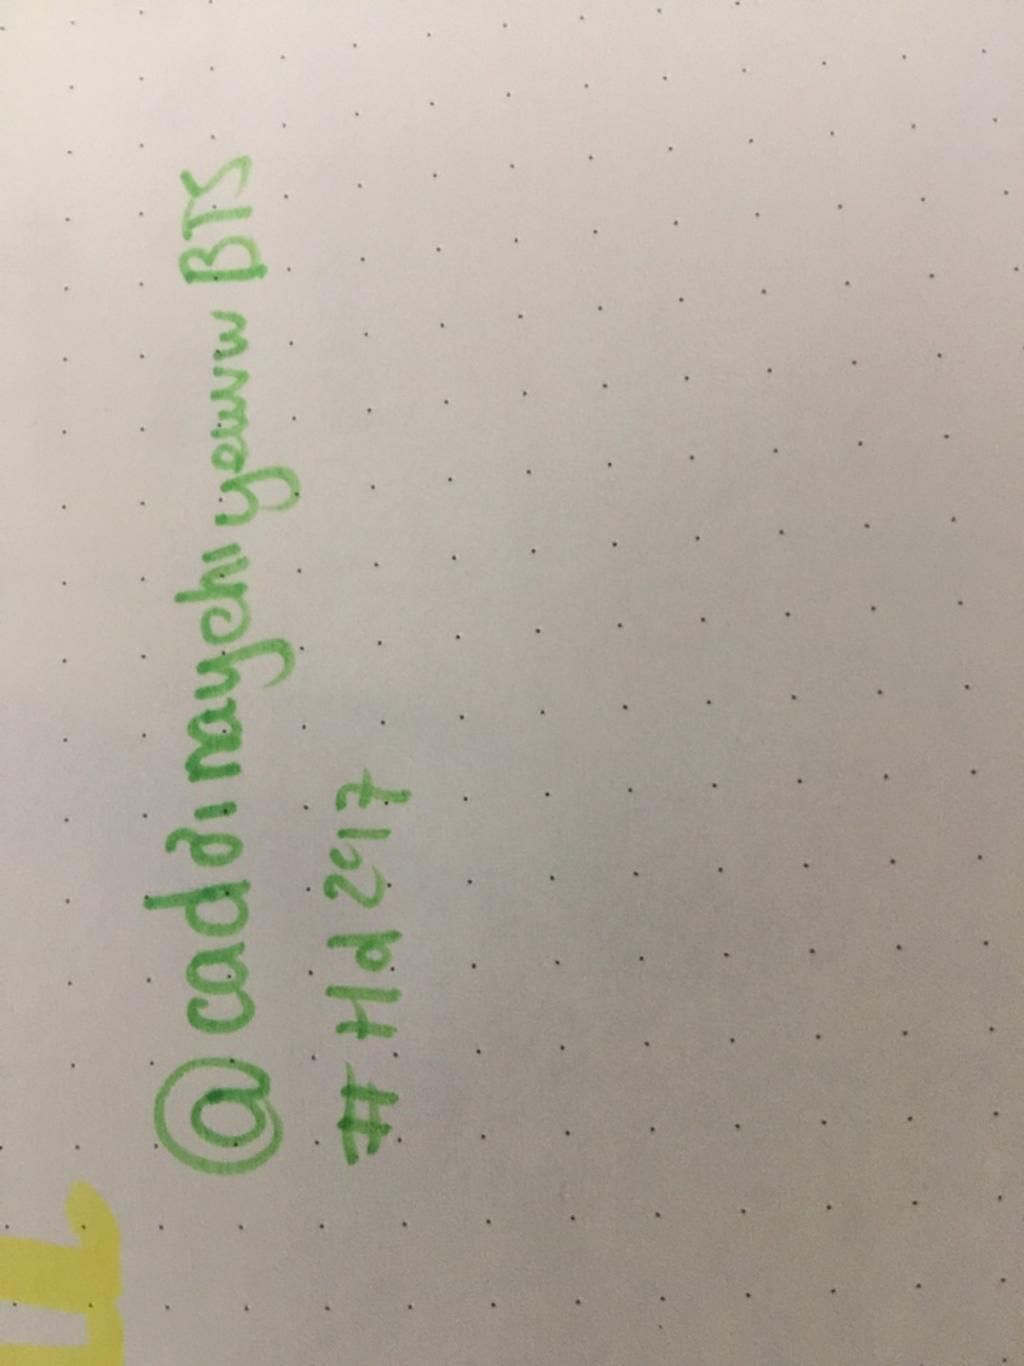 @caddinaychiyeuw BTS
#Hd2017